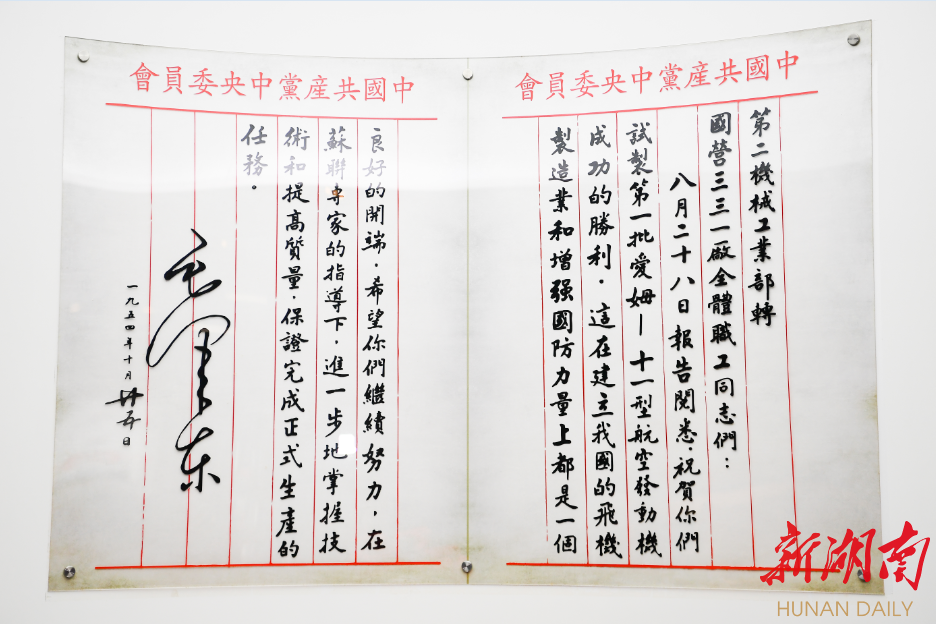 中國共産黨中央委員會
第二機械工業部轉
國营三三一廠全體職工同志們：
八月二十八日報告閱悉．祝賀你們
試製第一批愛姆—十一型航空發動機
成功的勝利．這在建立我國的飛機
製造業和增强國防力量上都是一個
中國共産黨中央委員會
良好的開端．希望你們繼續努力，在
蘇聯專家的指導下，進一步地掌握技
術和提高質量．保證完成正式生產的
任務。
毛澤東
一九五四年十月廿五日
新湖南
HUNAN DAILY